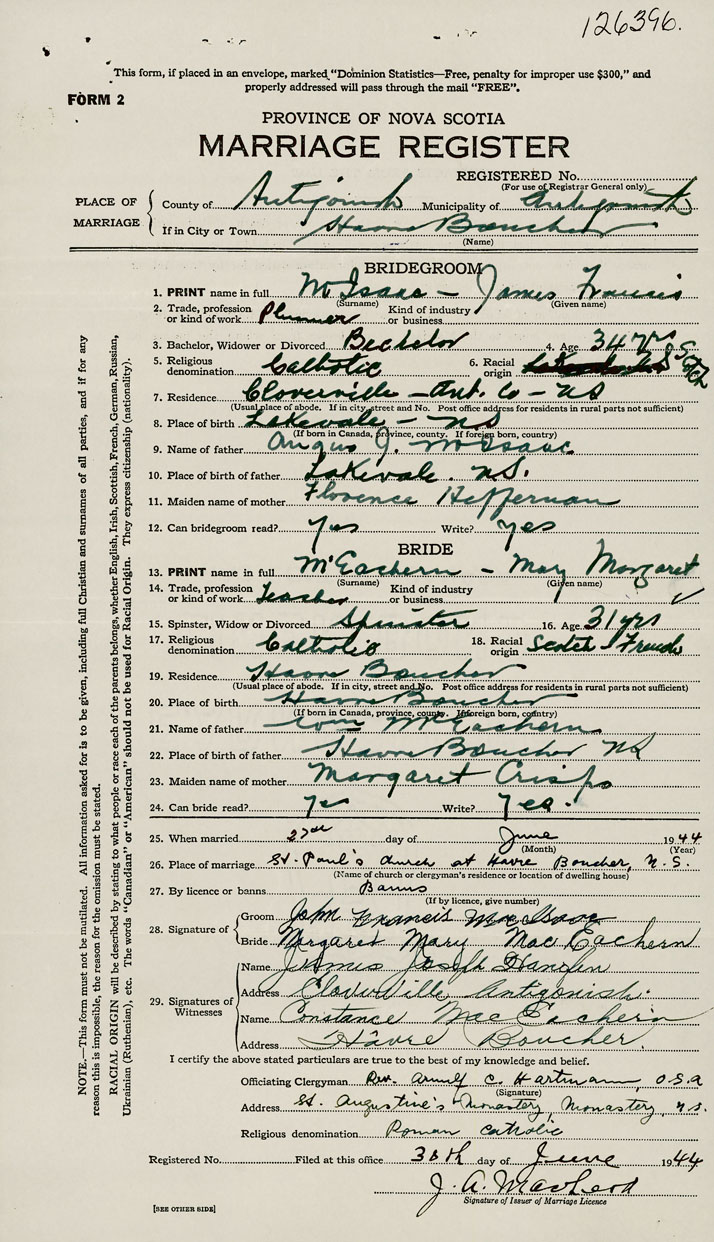 126396.
This form, if placed in an envelope, marked "Dominion Statistics—Free, penalty for improper use $300," and
properly addressed will pass through the mail "FREE".
FORM 2
PROVINCE OF NOVA SCOTIA
MARRIAGE REGISTER
REGISTERED No.
(For use of Registrar General only)
PLACE OF MARRIAGE
County of Antigonish Municipality of Antigonish
If in City or Town Havre Boucher
(Name)
BRIDEGROOM
1. PRINT name in full McIsaac - James Francis
(Surname) (Given name)
2. Trade, profession or kind of work Kind of industry or business
3. Bachelor, Widower or Divorced Bachelor 4. Age 34 yrs
5. Religious denomination Catholic 6. Racial origin Scotch
7. Residence Cloverville - Ant. Co - NS
(Usual place of abode. If in city, street and No. Post office address for residents in rural parts not sufficient)
8. Place of birth Lakevale - NS
(If born in Canada, province, county. If foreign born, country)
9. Name of father Angus J. McIsaac
10. Place of birth of father Lakevale. N.S.
11. Maiden name of mother Florence Heffernan
12. Can bridegroom read? Yes Write? Yes
BRIDE
13. PRINT name in full McEachern - Mary Margaret
(Surname) (Given name)
14. Trade, profession or kind of work Teacher Kind of industry or business ✓
15. Spinster, Widow or Divorced Spinster 16. Age 31 yrs
17. Religious denomination Catholic 18. Racial origin Scotch - French
19. Residence Havre Boucher
(Usual place of abode. If in city, street and No. Post office address for residents in rural parts not sufficient)
20. Place of birth Havre Boucher
(If born in Canada, province, county. If foreign born, country)
21. Name of father McEachern
22. Place of birth of father Havre Boucher NS
23. Maiden name of mother Margaret Crispo
24. Can bride read? Yes Write? Yes.
25. When married day of June 1944
(Month) (Year)
26. Place of marriage St. Paul's church at Havre Boucher, N.S.
(Name of church or clergyman's residence or location of dwelling house)
27. By licence or banns Banns
(If by licence, give number)
28. Signature of
Groom John Francis MacIsaac
Bride Margaret Mary MacEachern
29. Signatures of Witnesses
Name James Joseph
Address Cloverville, Antigonish.
Name Constance MacEachern
Address Havre Boucher.
I certify the above stated particulars are true to the best of my knowledge and belief.
Officiating Clergyman Rev. Arnulf C. Hartmann, O.S.A
(Signature)
Address St. Augustine's Monastery, Monastery, N.S.
Religious denomination Roman Catholic
Registered No. Filed at this office 30th day of June 1944
J. A. MacLeod
Signature of Issuer of Marriage Licence
[SEE OTHER SIDE]
NOTE.—This form must not be mutilated. All information asked for is to be given, including full Christian and surnames of all parties, and if for any
reason this is impossible, the reason for the omission must be stated.
RACIAL ORIGIN will be described by stating to what people or race each of the parents belongs, whether English, Irish, Scottish, French, German, Russian,
Ukrainian (Ruthenian), etc. The words "Canadian" or "American" should not be used for Racial Origin. They express citizenship (nationality).